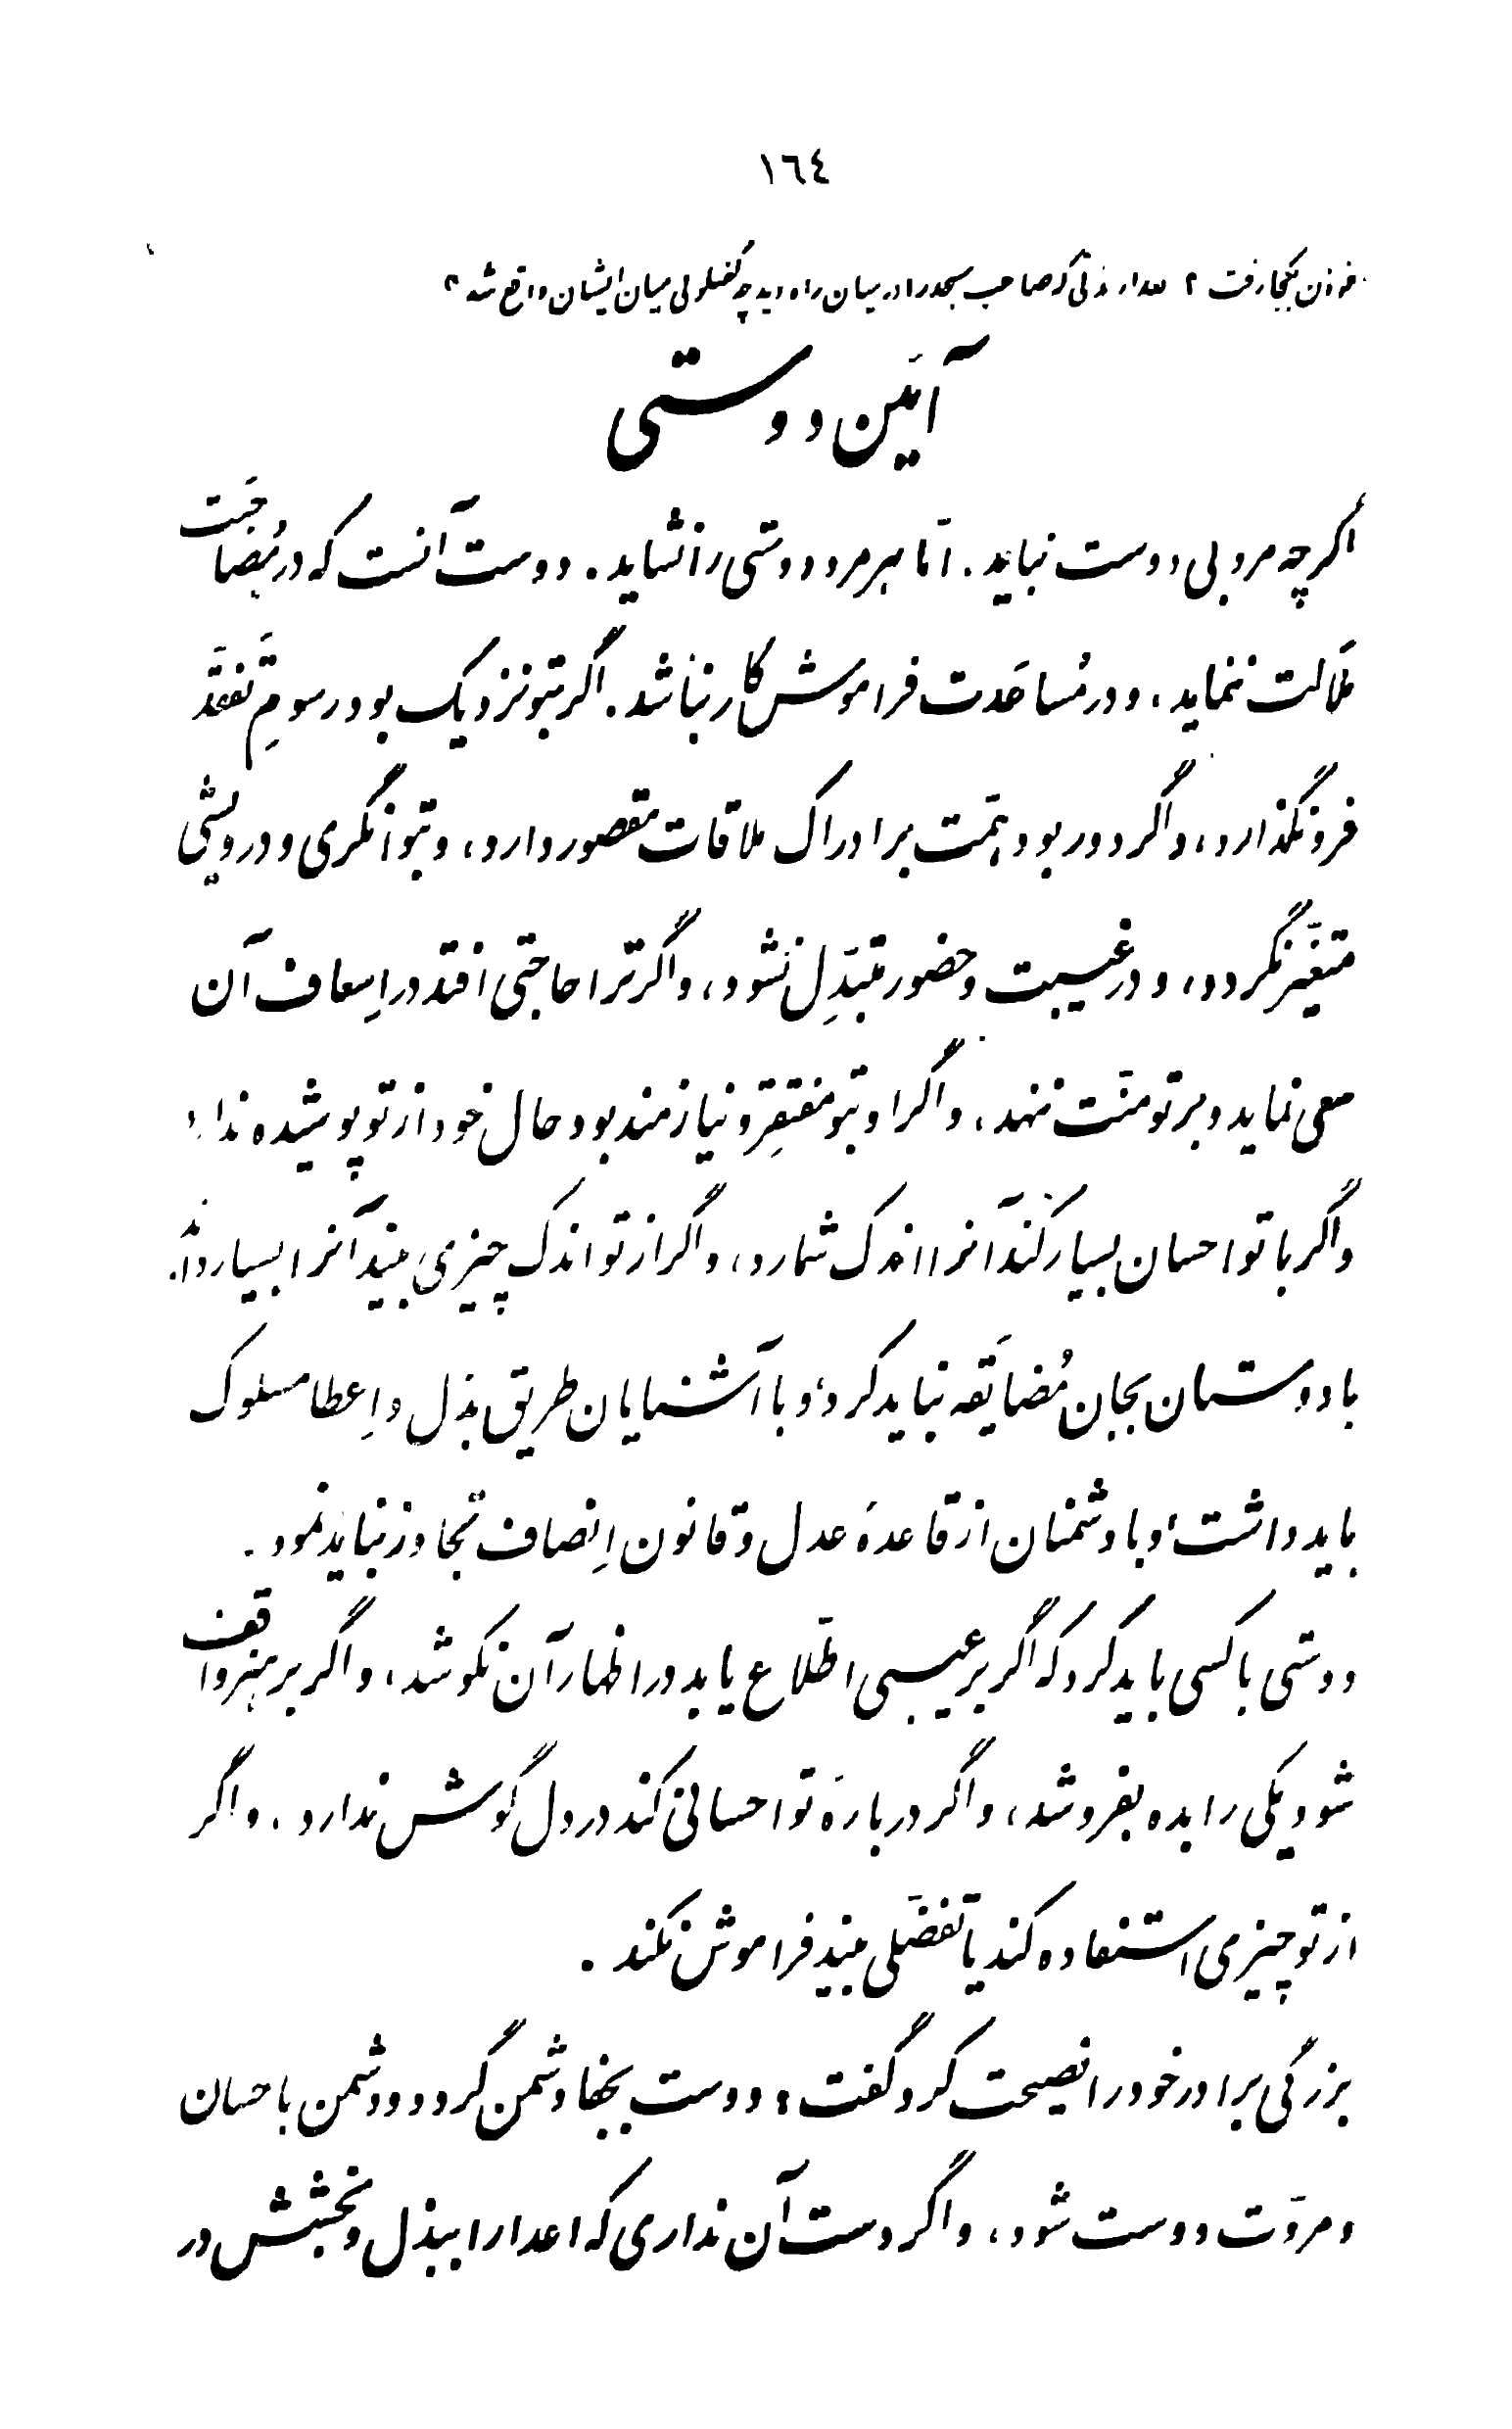 ١٦٤
مؤذن بکجا رفت ؟ بعد از مدتی که صاحب مسجد را در میان راه دید چه گفتگوئی میان ایشان واقع شد ؟
آئین دوستی
اگرچه مرد بی دوست نباید. امّا هر مرد دوستی را نشاید. دوست آنست که در مُصاحَبت
مَلالت ننماید، و در مُساعَدت فراموش کار نباشد. اگر بتو نزدیک بود رسومِ تَفَقّد
فرو نگذارد، و اگر دور بود همّت بر ادراک ملاقات مقصور دارد، و بتوانگری و درویشی
متغیّر نگردد، و در غیبت و حضور متبدّل نشود، و اگر ترا حاجتی افتد در اِسعاف آن
سعی نماید و بر تو منّت ننهد، و اگر او بتو مفتقِر و نیازمند بود حال خود از تو پوشیده ندارد
و اگر با تو احسان بسیار کند آنرا اندک شمارد، و اگر از تو اندک چیزی بیند آنرا بسیار داند.
با دوستان بجان مُضایَقه نباید کرد، و با آشنایان طریق بذل و اِعطا مسلوک
باید داشت، و با دشمنان از قاعدهٔ عدل و قانون اِنصاف تجاوز نباید نمود.
دوستی با کسی باید کرد که اگر بر عیبی اطّلاع یابد در اظهار آن نکوشد، و اگر بر هنر واقف
شود یکی را بده بفروشد، و اگر دربارهٔ تو احسانی کند در دل گوش ندارد. و اگر
از تو چیزی استفاده کند یا تفضّلی بیند فراموش نکند.
بزرگی برادر خود را نصیحت کرد و گفت: دوست بجفا دشمن گردد و دشمن باحسان
و مروّت دوست شود، و اگر دست آن نداری که اعدا را ببذل و بخشش در